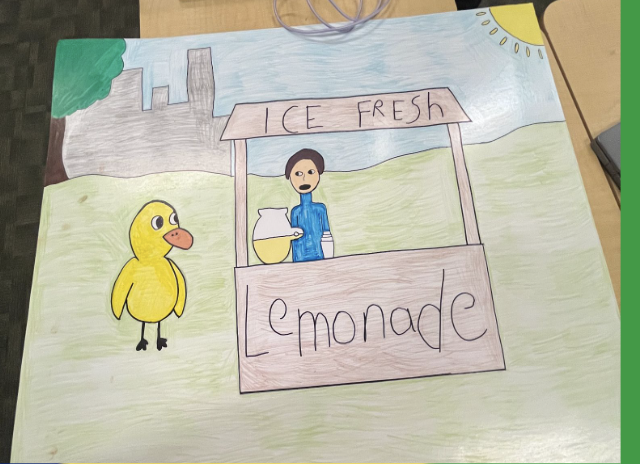 ICE FRESh
Lemonade